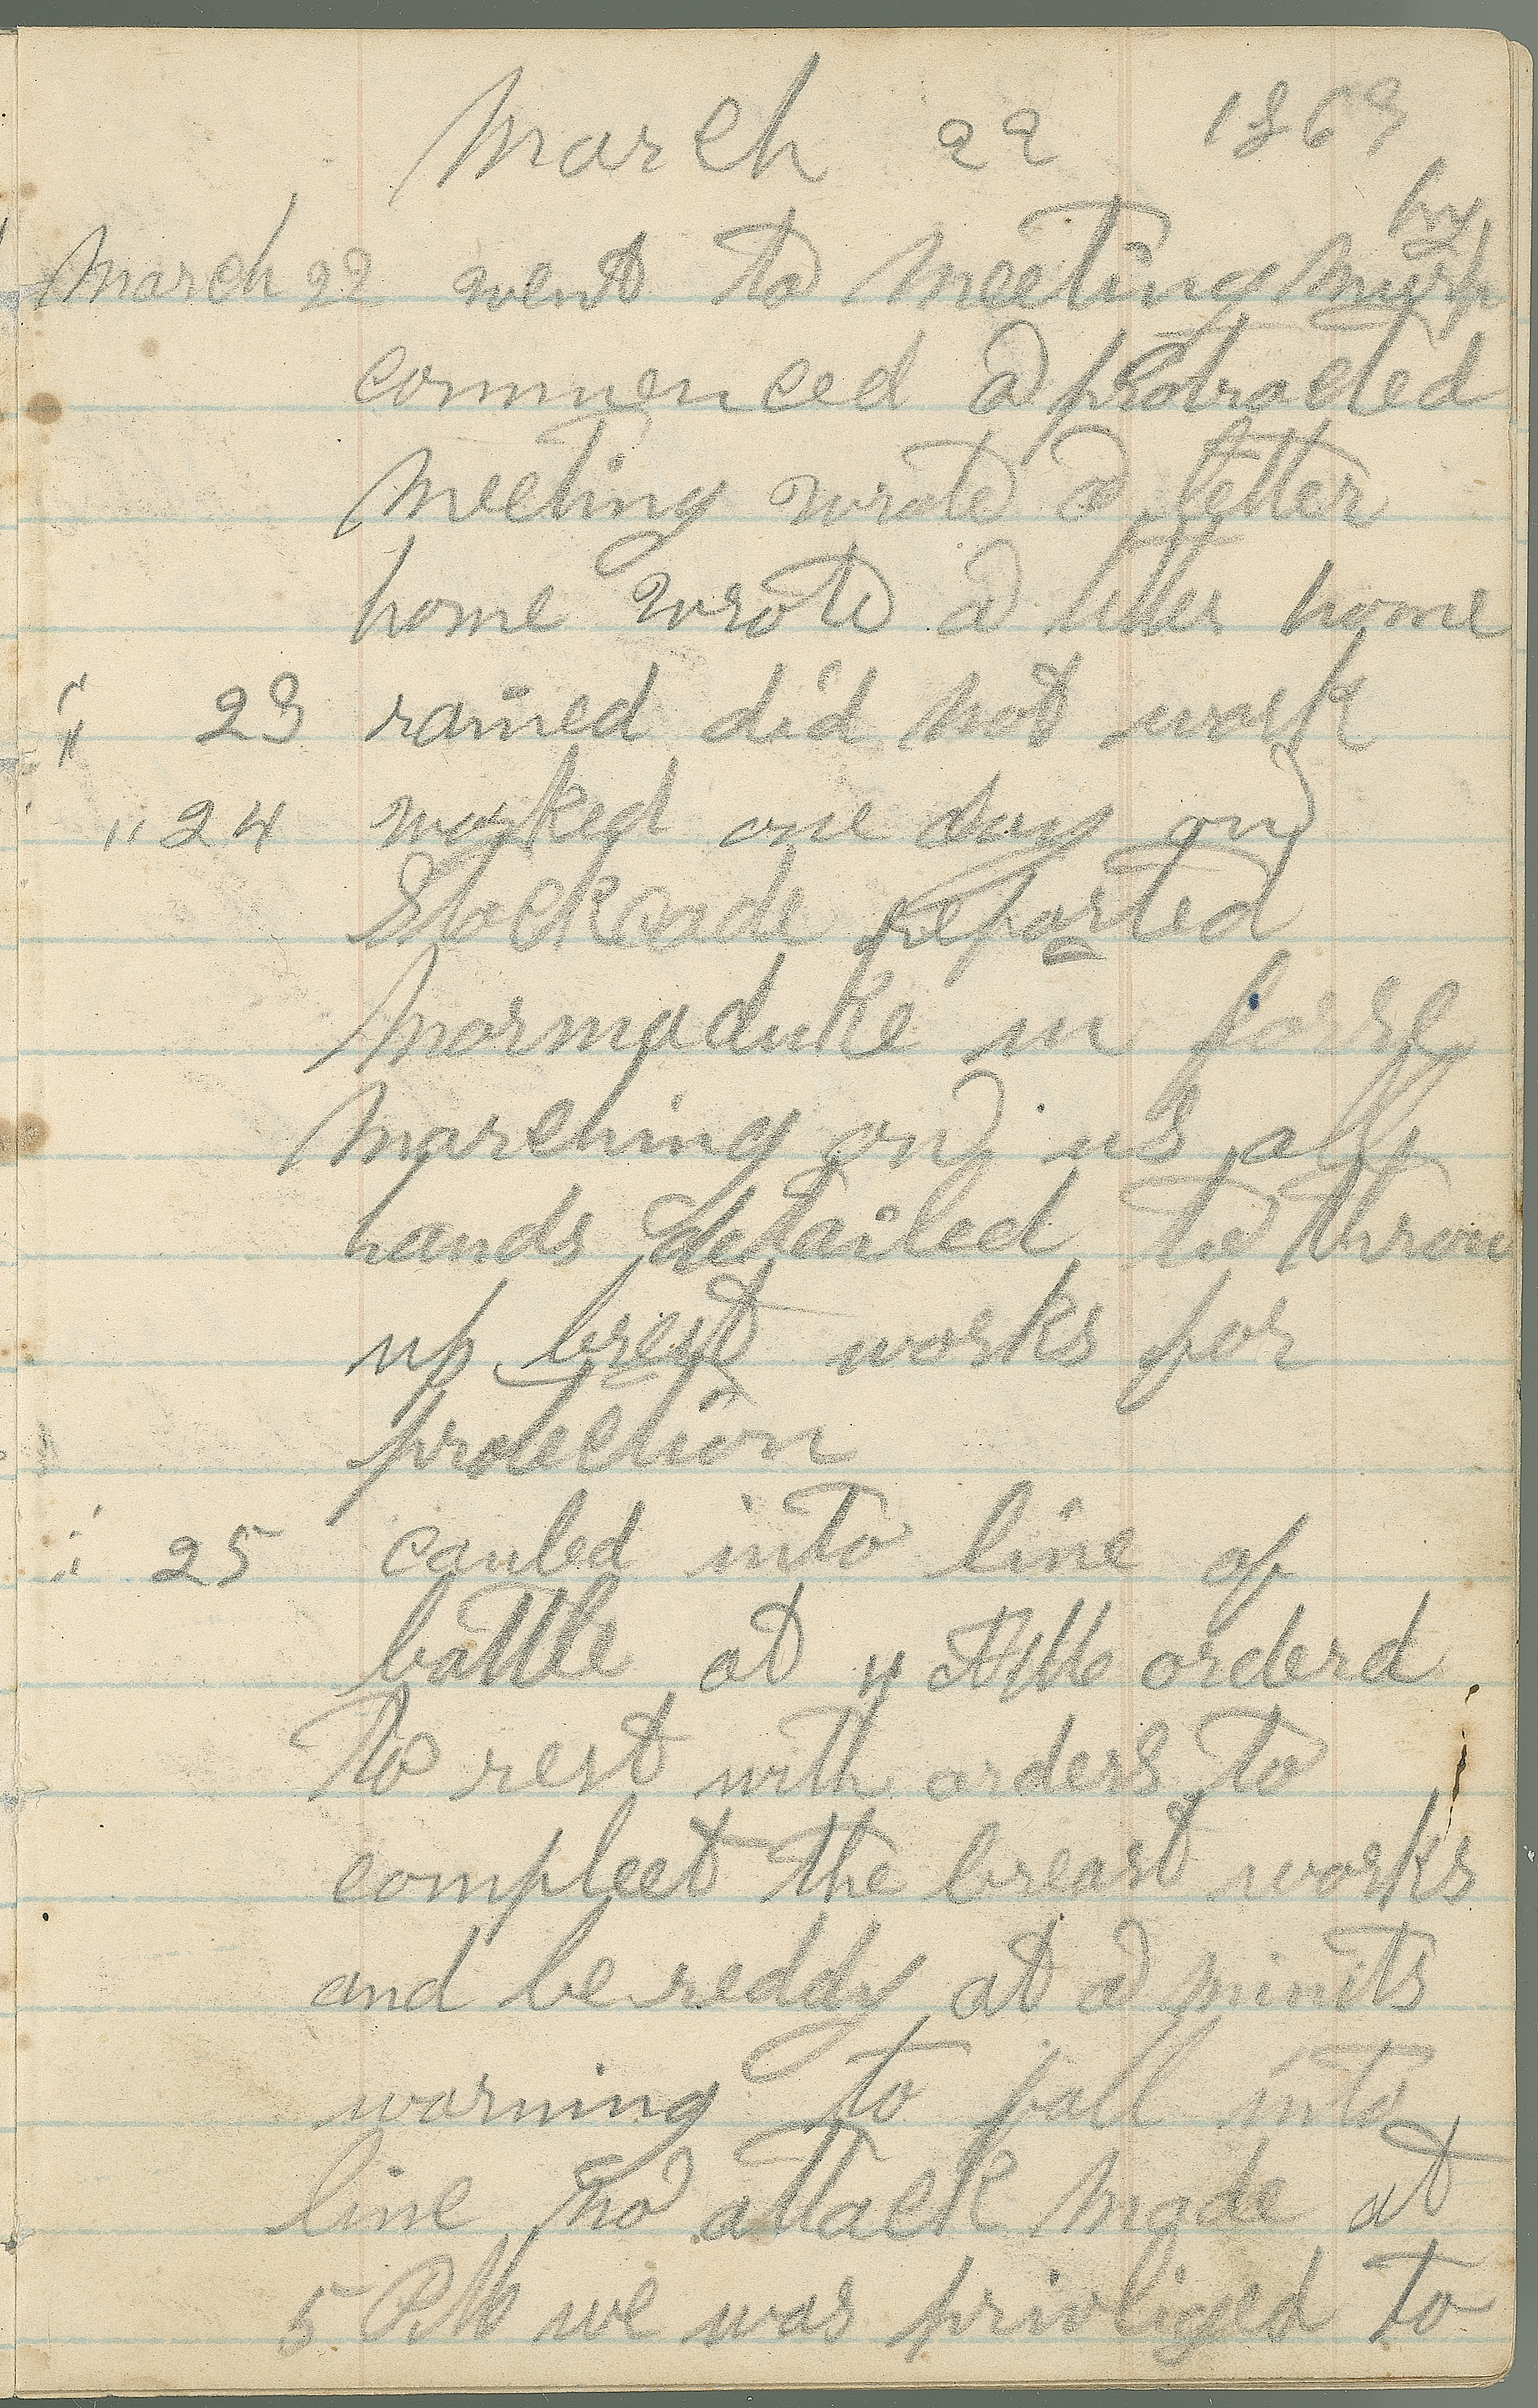 March 22 1863
by
March 22 went to meeting Murp
commenced a protracted
meeting wrote a letter
home wrote a letter home
" 23 rained did not work
" 24 worked one day on
Stockcade reported
Marmaduke in forse
marching on us all
hands detailed to throw
up brest works for
protection
" 25 cauled into line of
battle at 11 AM orderd
to rest with orders to
compleet the breast works
and be reddy at a minits
warning to fall into
line no attack made at
5 PM we was privliged to